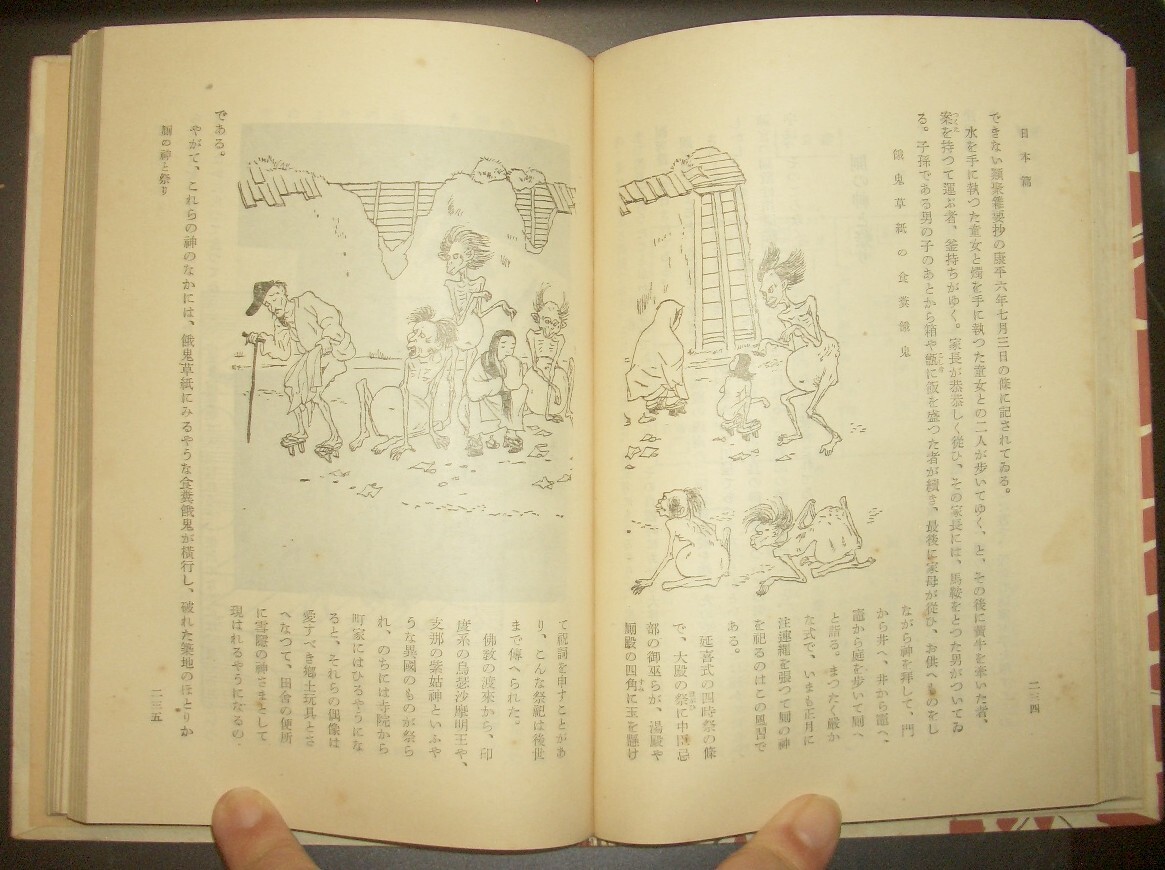 日本篇
二三四
できない類聚雜要抄の康平六年七月三日の條に記されてゐる。
水を手に執つた童女と燭を手に執つた童女との二人が歩いてゆく、と、その後に黄牛を牽いた者、
案を持つて運ぶ者、釜持ちがゆく。家長が恭恭しく從ひ、その家長には、馬鞍をとつた男がついてゐ
る。子孫である男の子のあとから箱や甑に飯を盛つた者が續き、最後に家母が從ひ、お供へものをし
餓鬼草紙の食糞餓鬼
ながら神を拜して、門
から井へ、井から竈へ、
竈から庭を歩いて厠へ
と詣る。まつたく嚴か
な式で、いまも正月に
注連繩を張つて厠の神
を祀るのはこの風習で
ある。
延喜式の四時祭の條
で、大殿の祭に中臣忌
部の御巫らが、湯殿や
厠殿の四角に玉を懸け
て祝詞を申すことがあ
り、こんな祭祀は後世
まで傳へられた。
佛教の渡來から、印
度系の烏瑟沙摩明王や、
支那の紫姑神といふや
うな異國のものが祭ら
れ、のちには寺院から
町家にはひるやうにな
ると、それらの偶像は
愛すべき郷土玩具とさ
へなつて、田舍の便所
に雪隱の神さまとして
現はれるやうになるの
である。
やがて、これらの神のなかには、餓鬼草紙にみるやうな食糞餓鬼が横行し、破れた築地のほとりか
厠の神と祭り
二三五